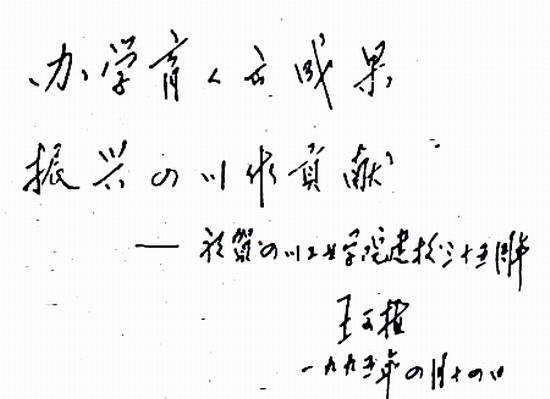 办学育人出成果
振兴四川作贡献
——祝贺四川工业学院建校三十五周年
王可植
一九九五年四月十四日